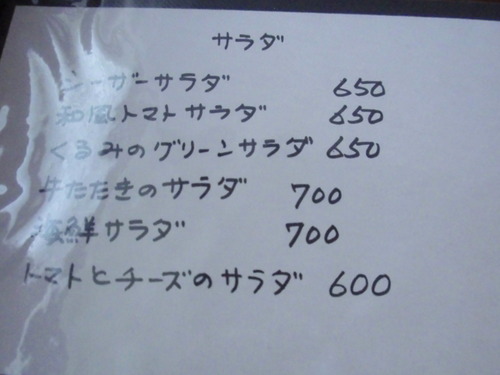 サラダ
シーザーサラダ 650
和風トマトサラダ 650
くるみのグリーンサラダ 650
牛たたきのサラダ 700
海鮮サラダ 700
トマトとチーズのサラダ 600